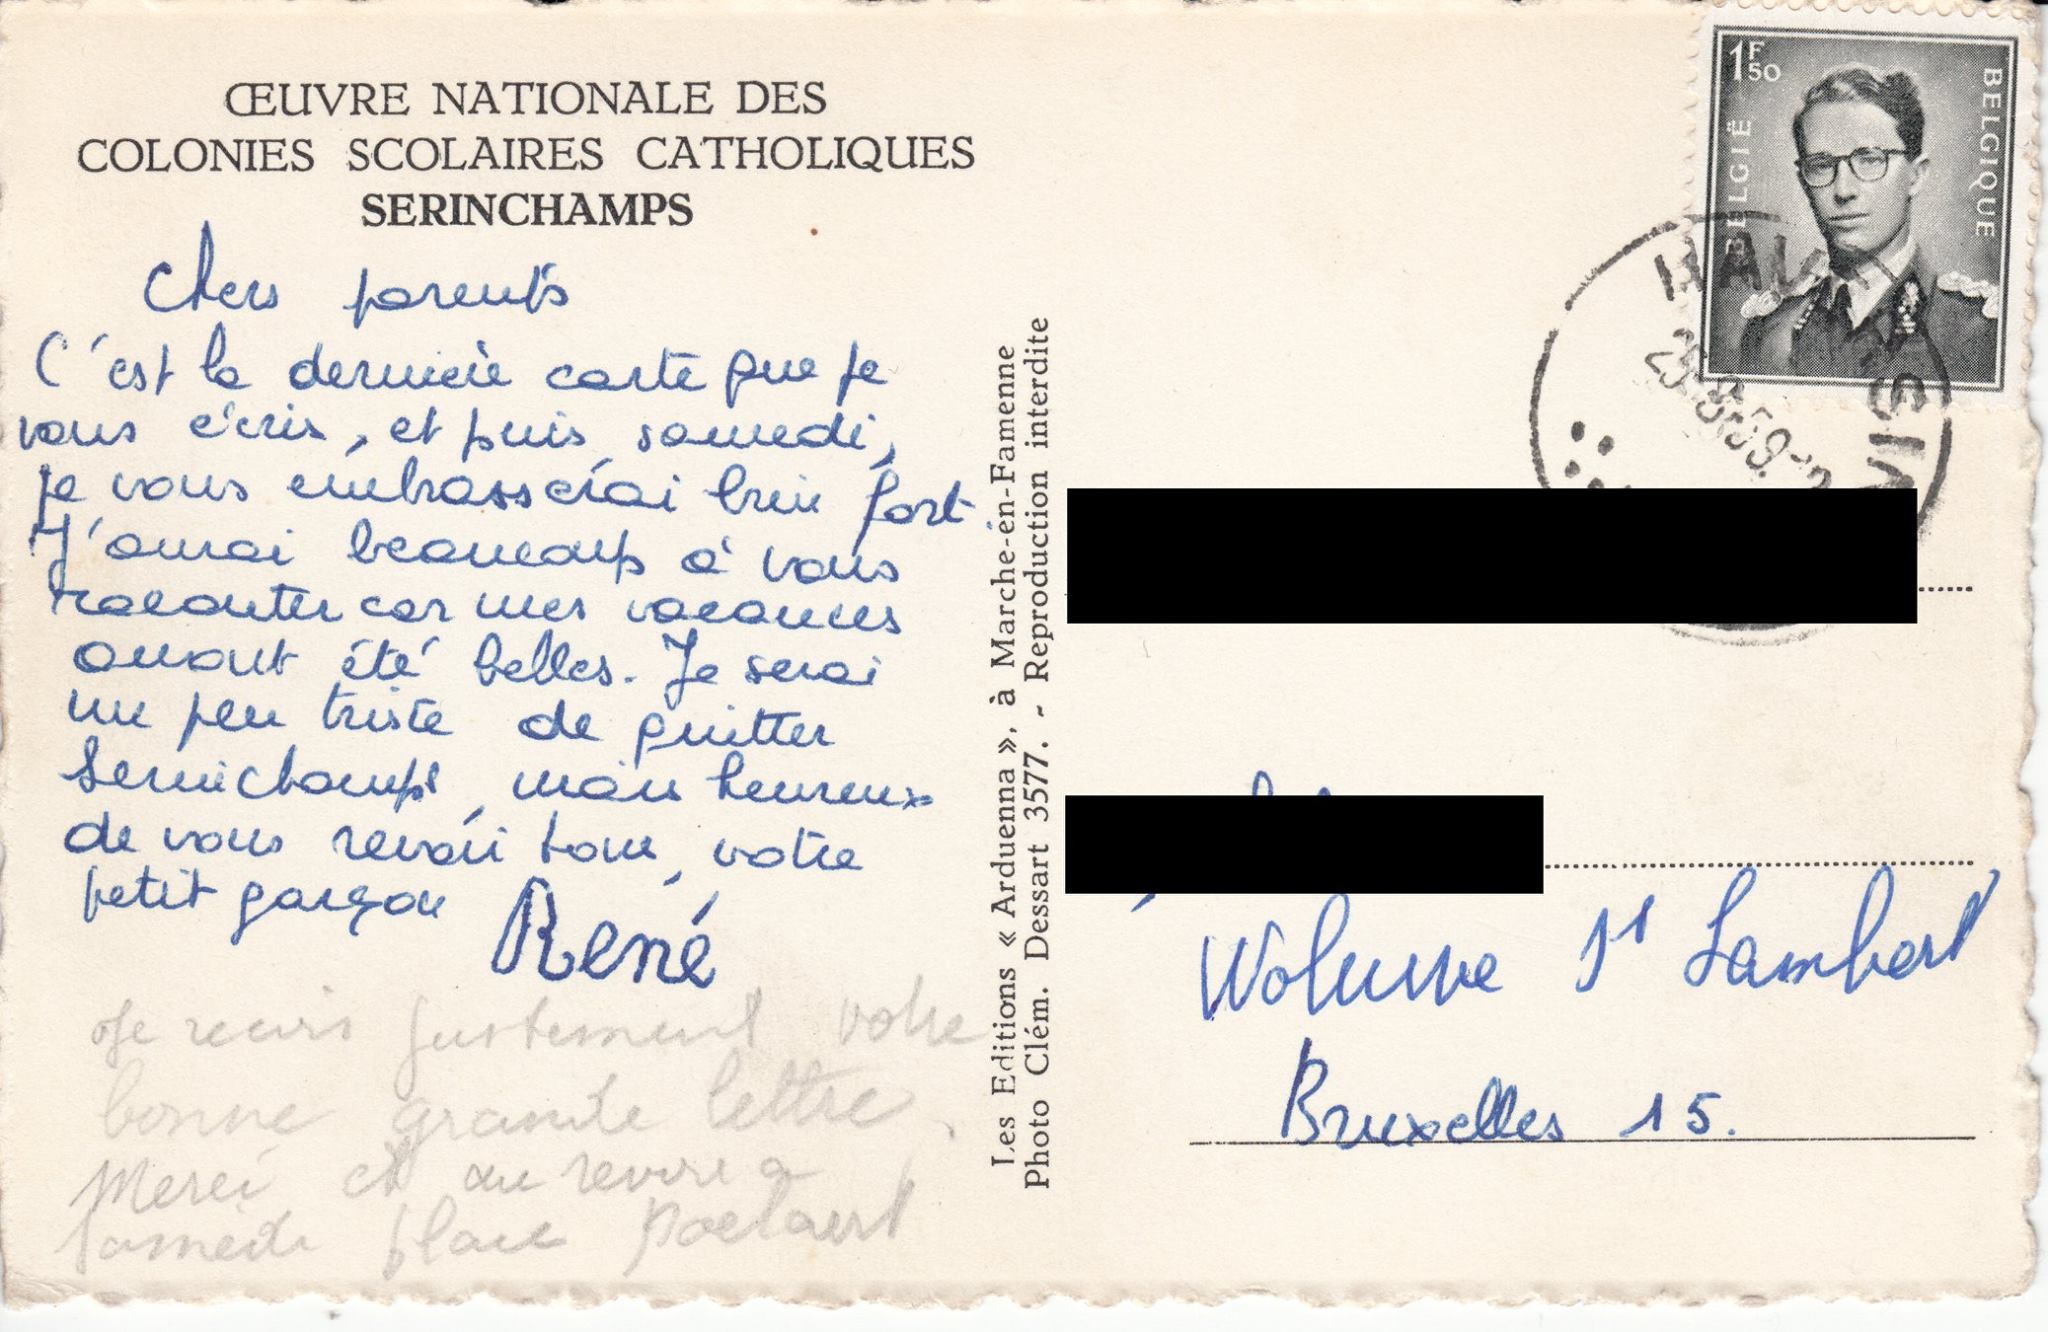 ŒUVRE NATIONALE DES
COLONIES SCOLAIRES CATHOLIQUES
SERINCHAMPS
Chers parents
C'est la dernière carte que je
vous écris, et puis samedi,
je vous embrasserai bien fort.
J'aurai beaucoup à vous
raconter car mes vacances
auront été belles. Je serai
un peu triste de quitter
Serinchamps, mais heureux
de vous revoir tous, votre
petit garçon René
Je reçois justement votre
bonne grande lettre.
Merci et au revoir a
samedi place Poelaert
Les Editions « Arduenna », à Marche-en-Famenne
Photo Clém. Dessart 3577. - Reproduction interdite
1F50
BELGIE
BELGIQUE
Woluwe St Lambert
Bruxelles 15.